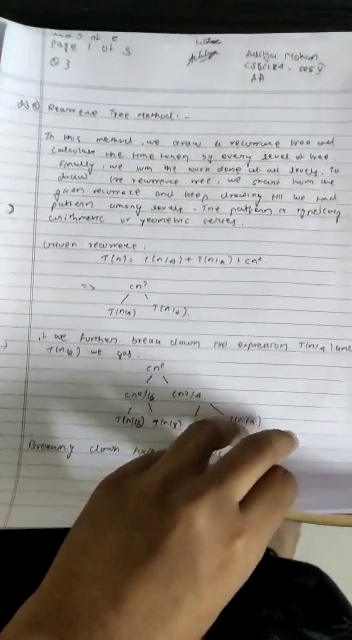 Page 1 of 3
Q 3
Aditya Mohan
AA
Recurrence Tree Method: -
In this method, we draw a recurrence tree and
calculate the time taken by every level of tree.
Finally, we sum the work done at all levels. To
draw the recurrence tree, we start from the
given recurrence and keep drawing till we find
pattern among levels. The pattern is typically
arithmetic or geometric series.
Given recurrence:
T(n) = T(n/4) + T(n/2) + cn²
=> cn²
T(n/4) T(n/2).
we further break down the expression T(n/4) and
T(n/2) we get.
cn²
cn²/16 cn²/4
T(n/16) T(n/8)
Breaking down